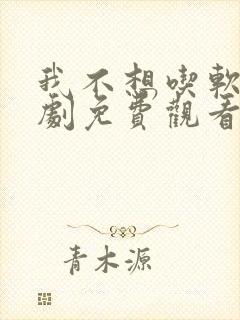 我不想喫軟
劇免費觀看
青木源